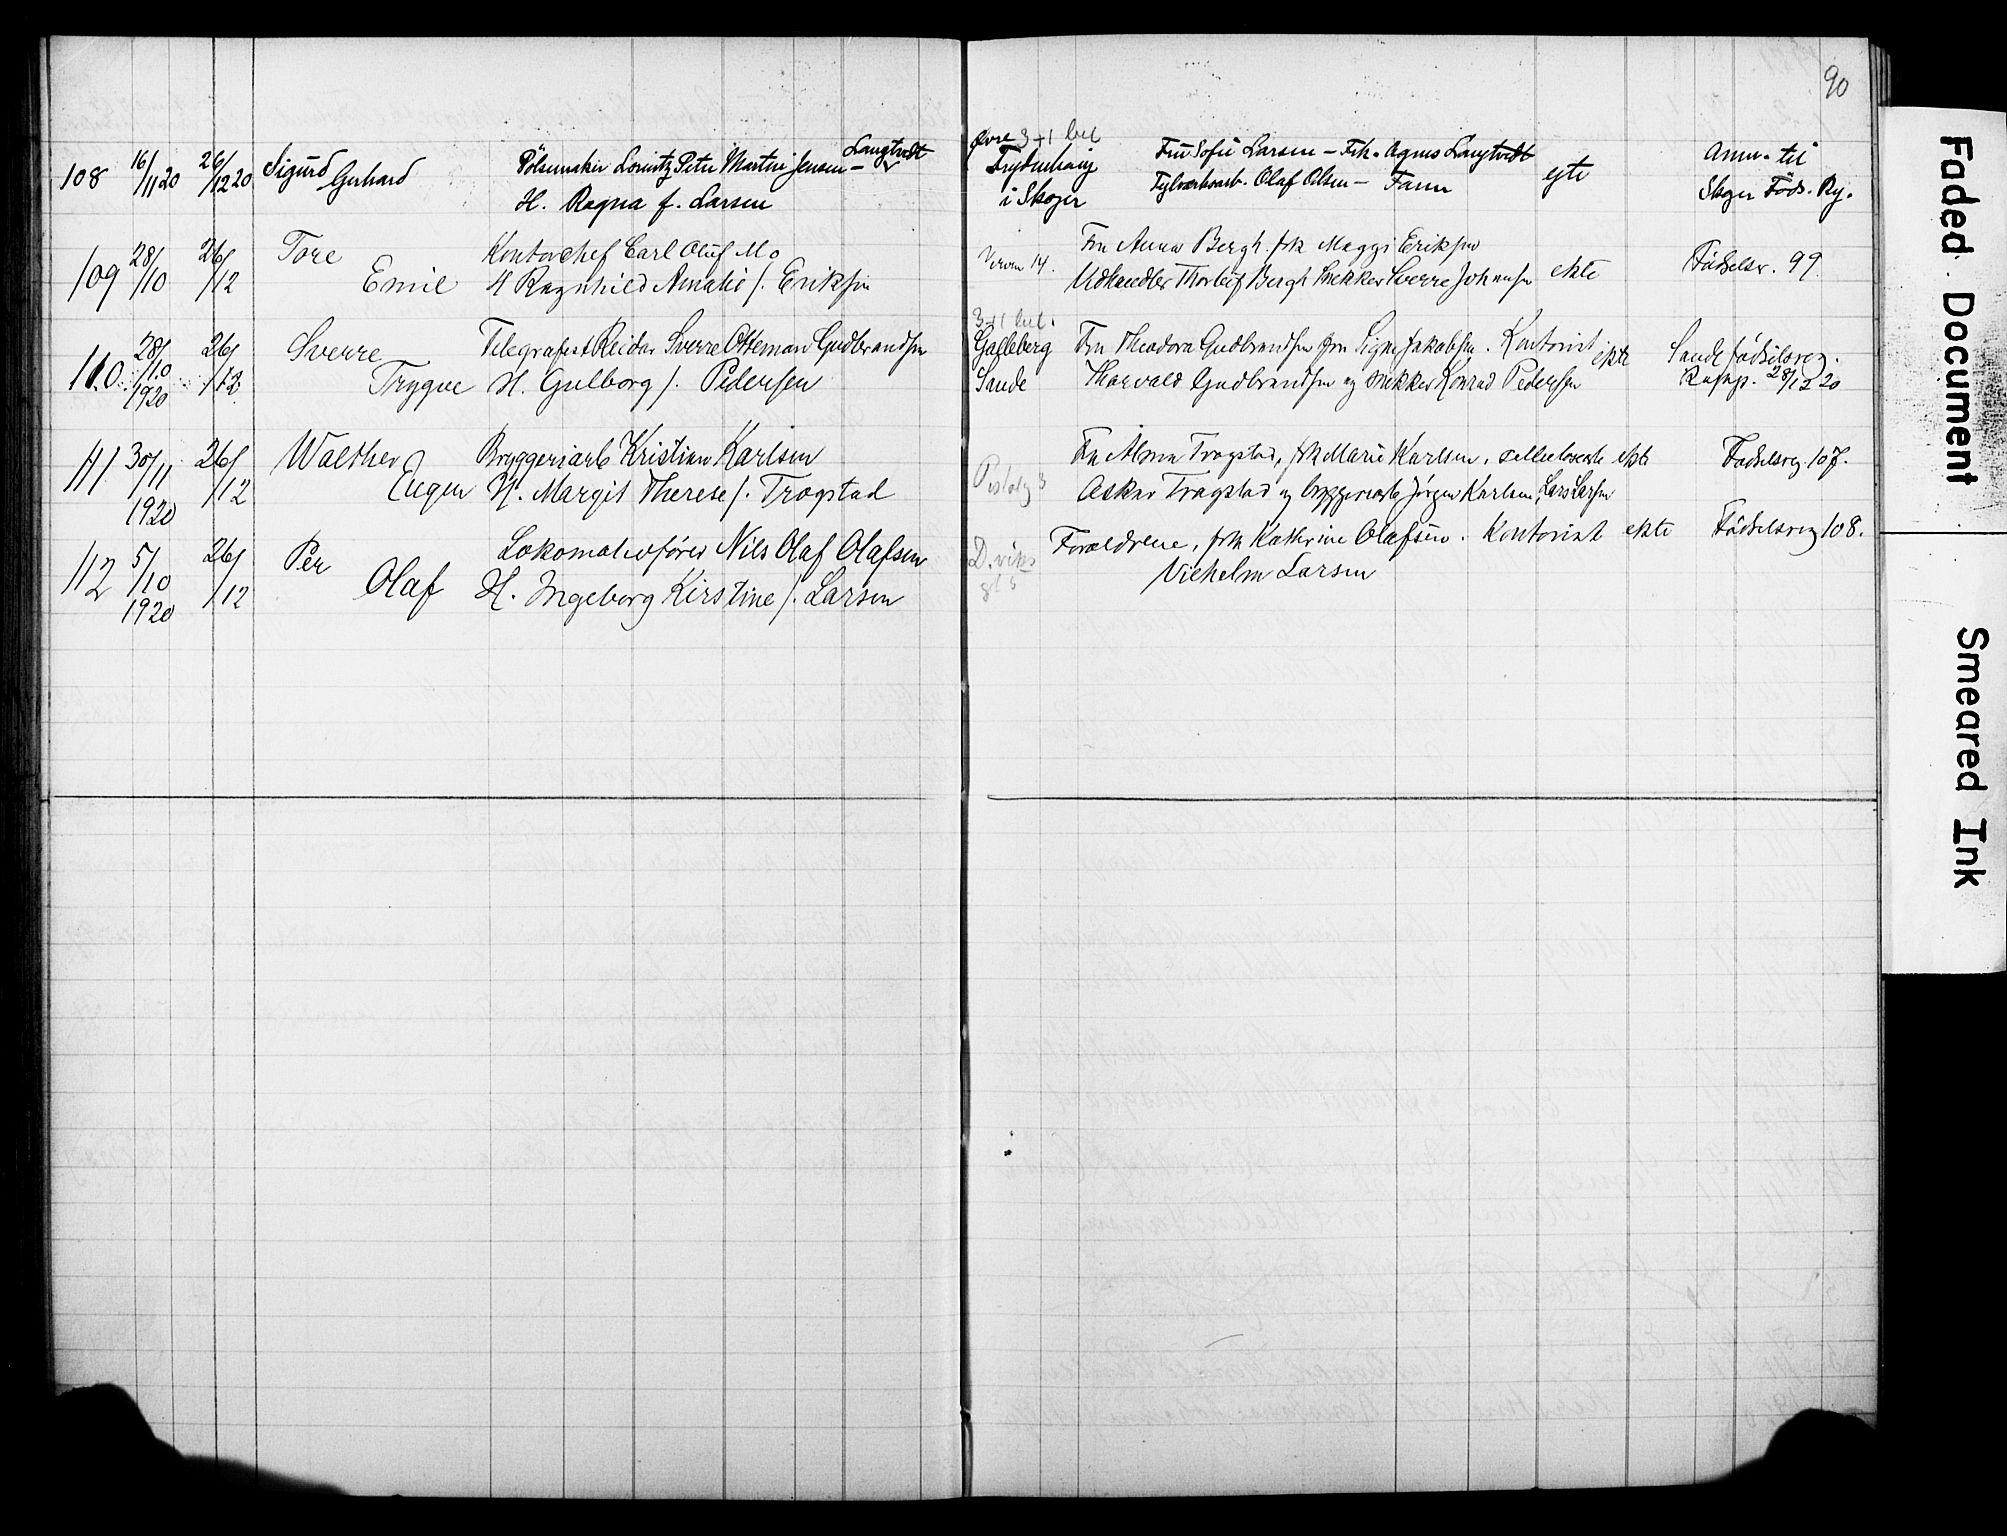 90
108 16/11 20 26/12 20 Sigurd Gerhard Pölsemaker Lorentz Peter Martin Jensen - Langtvedt
H. Ragna f. Larsen
Øvre 3+1 bel
Frydenhaug
i Skoger
Fru Sofie Larsen - Frk. Agnes Langtvedt
Olaf Olsen - Faren
egte
Anm. til
Skoger Föds. Rg.
109 28/10 26/12 Tore Emil Kontorchef Carl Oluf Mo
H Ragnhild Amalie f. Eriksen
14.
Fru Anna Bergh. frk Maggi Eriksen
Udhandler Thorleif Bergh Snekker Sverre Johansen
ekte
Födselsr. 99
110 28/10 1920 26/12 Sverre Trygve Telegrafist Reidar Sverre Otteman Gudbrandsen
H. Gulborg f. Pedersen
3+1 bel.
Galleberg
Sande
Fru Theodora Gudbrandsen fru Signe Jakobsen. Kontorist
Thorvald Gudbrandsen og snekker Konrad Pedersen
ekte
Sande födselsreg.
28/12 20
111 30/11 1920 26/12 Walther Eugen Bryggeriarb Kristian Karlsen
H. Margit Therese f. Trogstad
3
Fru Alma Trogstad, frk Marie Karlsen, cellulosearb
Asker Trogstad og bryggeriarb Jörgen Karlsen, Lars Larsen
ekte
Födselsreg 107.
112 5/10 1920 26/12 Per Olaf Lokomotivförer Nils Olaf Olafsen
H. Ingeborg Kirstine f. Larsen
D. viks
gt 5
Foreldrene, frk Kathrine Olafsen. Kontorist
Vilhelm Larsen
ekte
Födselsreg 108.
Faded Document
Smeared Ink